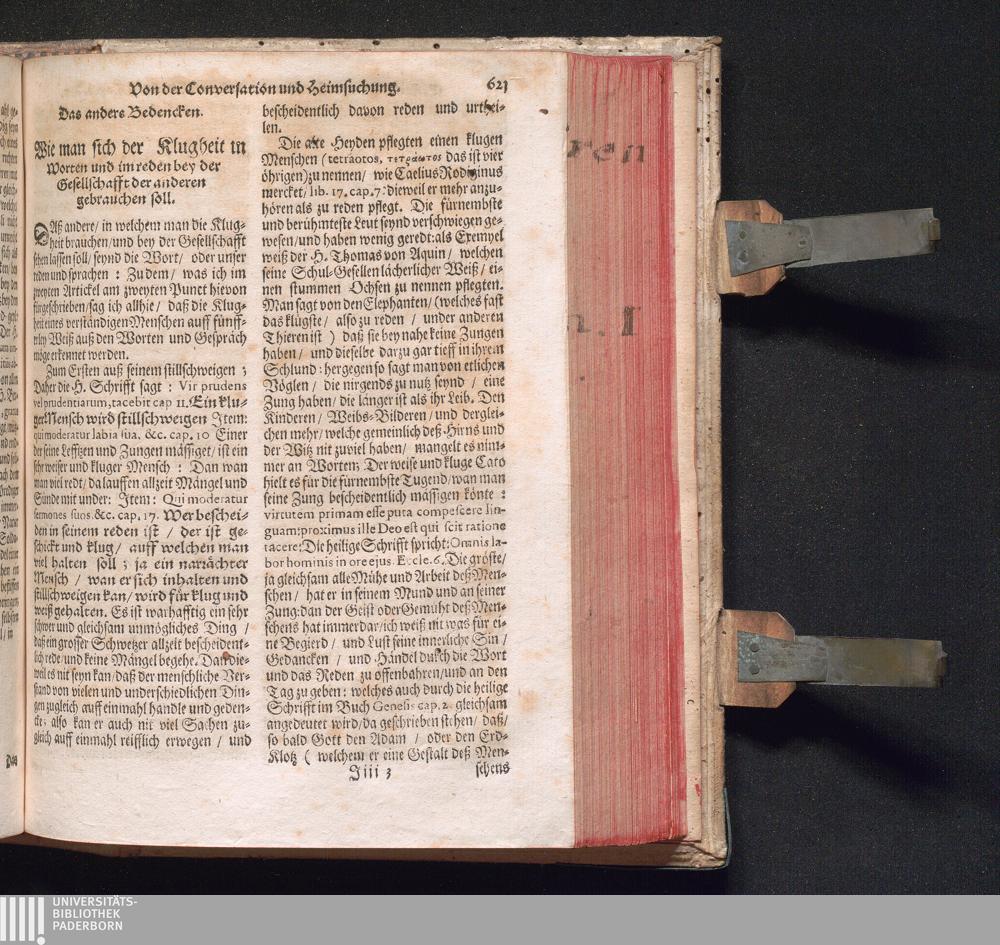 Von der Conversation und Heimsuchung. 621
Das andere Bedencken.
Wie man sich der Klugheit in
Worten und im reden bey der
Gesellschafft der anderen
gebrauchen soll.
DAß andere/ in welchem man die Klug-
heit brauchen/ und bey der Gesellschafft
sehen lassen soll/ seynd die Wort/ oder unser
reden und sprachen : Zu dem/ was ich im
zweyten Artickel am zweyten Punct hievon
fürgeschrieben/ sag ich allhie/ daß die Klug-
heit eines verständigen Menschen auff fünff-
erley Weiß auß den Worten und Gespräch
möge erkennet werden.
Zum Ersten auß seinem stillschweigen ;
Daher die H. Schrifft sagt : Vir prudens
vel prudentiarum, tacebit cap 11. Ein klu-
ger Mensch wird stillschweigen Item:
qui moderatur labia sua. &c. cap. 10 Einer
der seine Lefftzen und Zungen mässiget/ ist ein
sehr weiser und kluger Mensch : Dan wan
man viel redt/ da lauffen allzeit Mängel und
Sünde mit under: Item: Qui moderatur
sermones suos. &c. cap. 17. Wer beschei-
den in seinem reden ist / der ist ge-
schickt und klug/ auff welchen man
viel halten soll ; ja ein narrächter
Mensch / wan er sich inhalten und
stillschweigen kan/ wird für klug und
weiß gehalten. Es ist warhafftig ein sehr
schwer und gleichsam unmögliches Ding /
daß ein grosser Schwetzer allzeit bescheident-
lich rede/ und keine Mängel begehe. Dan die-
weil es nit seyn kan/ daß der menschliche Ver-
stand von vielen und underschiedlichen Din-
gen zugleich auff einmahl handle und geden-
cke; also kan er auch nit viel Sachen zu-
gleich auff einmahl reifflich erwegen / und
bescheidentlich davon reden und urthei-
len.
Die alte Heyden pflegten einen klugen
Menschen (tetraotos, τετράωτος das ist vier
öhrigen) zu nennen/ wie Caelius Rodiginus
mercket/ lib. 17. cap. 7: dieweil er mehr anzu-
hören als zu reden pflegt. Die fürnembste
und berühmteste Leut seynd verschwiegen ge-
wesen/ und haben wenig geredt: als Exempel
weiß der H. Thomas von Aquin/ welchen
seine Schul-Gesellen lächerlicher Weiß/ ei-
nen stummen Ochsen zu nennen pflegten.
Man sagt von den Elephanten/ (welches fast
das klügste/ also zu reden / under anderen
Thieren ist ) daß sie bey nahe keine Zungen
haben/ und dieselbe darzu gar tieff in ihrem
Schlund: hergegen so sagt man von etlichen
Vöglen/ die nirgends zu nutz seynd / eine
Zung haben/ die länger ist als ihr Leib. Den
Kinderen/ Weibs-Bilderen/ und derglei-
chen mehr/ welche gemeinlich deß Hirns und
der Witz nit zuviel haben/ mangelt es nim-
mer an Worten; Der weise und kluge Cato
hielt es für die fürnembste Tugend/ wan man
seine Zung bescheidentlich mässigen könte :
virtutem primam esse puta compescere lin-
guam: proximus ille Deo est qui scit ratione
tacere: Die heilige Schrifft spricht: Omnis la-
bor hominis in ore ejus. Eccle. 6. Die gröste/
ja gleichsam alle Mühe und Arbeit deß Men-
schen / hat er in seinem Mund und an seiner
Zung: dan der Geist oder Gemüht deß Men-
schens hat immerdar/ ich weiß nit was für ei-
ne Begierd / und Lust seine innerliche Sin/
Gedancken / und Händel durch die Wort
und das Reden zu offenbahren/ und an den
Tag zu geben: welches auch durch die heilige
Schrifft im Buch Genesis cap. 2. gleichsam
angedeutet wird/ da geschrieben stehen/ daß/
so bald Gott den Adam / oder den Erd-
Klotz ( welchem er eine Gestalt deß Men-
Jiii 3 schens
UNIVERSITÄTS-
BIBLIOTHEK
PADERBORN